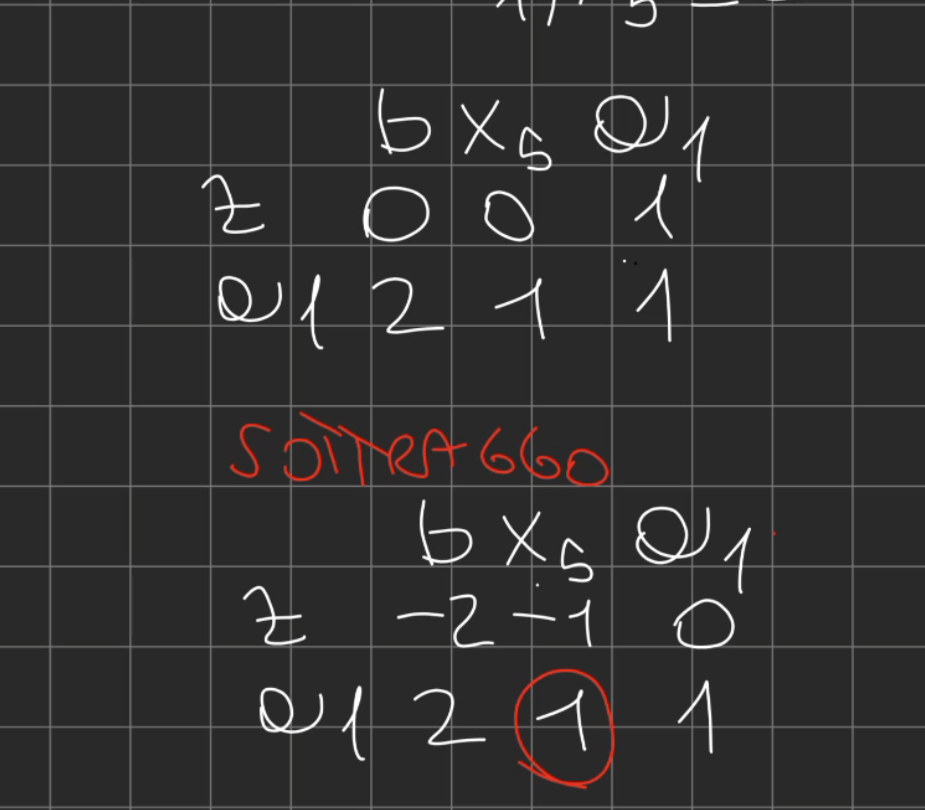 b x5 a1
z 0 0 1
a1 2 1 1
SOTTRAGGO
b x5 a1
z -2 -1 0
a1 2 1 1